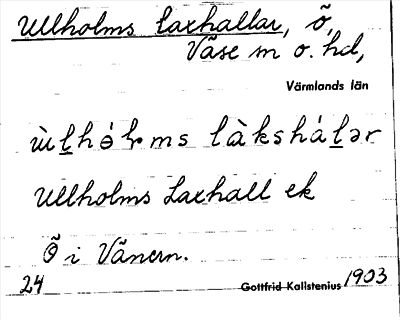 Ullholms laxhallar, ö,
Väse sn o. hd,
Värmlands län
ùḻhólms là̀ksháḻər
Ullholms Laxhall ek
Ö i Vänern.
24 Gottfrid Kallstenius 1903